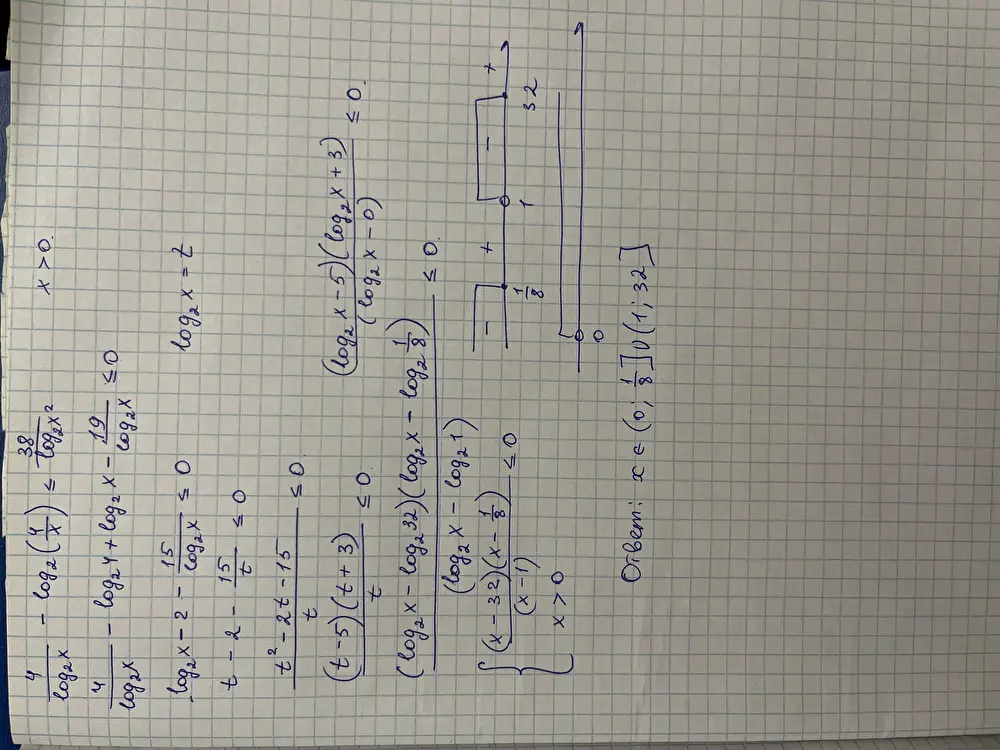 4/log₂x - log₂(4/x) ≤ 38/log₂x² x > 0.
4/log₂x - log₂4 + log₂x - 19/log₂x ≤ 0
log₂x - 2 - 15/log₂x ≤ 0 log₂x = t
t - 2 - 15/t ≤ 0
(t² - 2t - 15)/t ≤ 0.
(t - 5)(t + 3)/t ≤ 0. (log₂x - 5)(log₂x + 3)/(log₂x - 0) ≤ 0.
(log₂x - log₂32)(log₂x - log₂ 1/8)/(log₂x - log₂1) ≤ 0.
{ (x - 32)(x - 1/8)/(x - 1) ≤ 0
x > 0
- + - +
1/8 1 32
0
Ответ: x ∈ (0; 1/8] ∪ (1; 32]